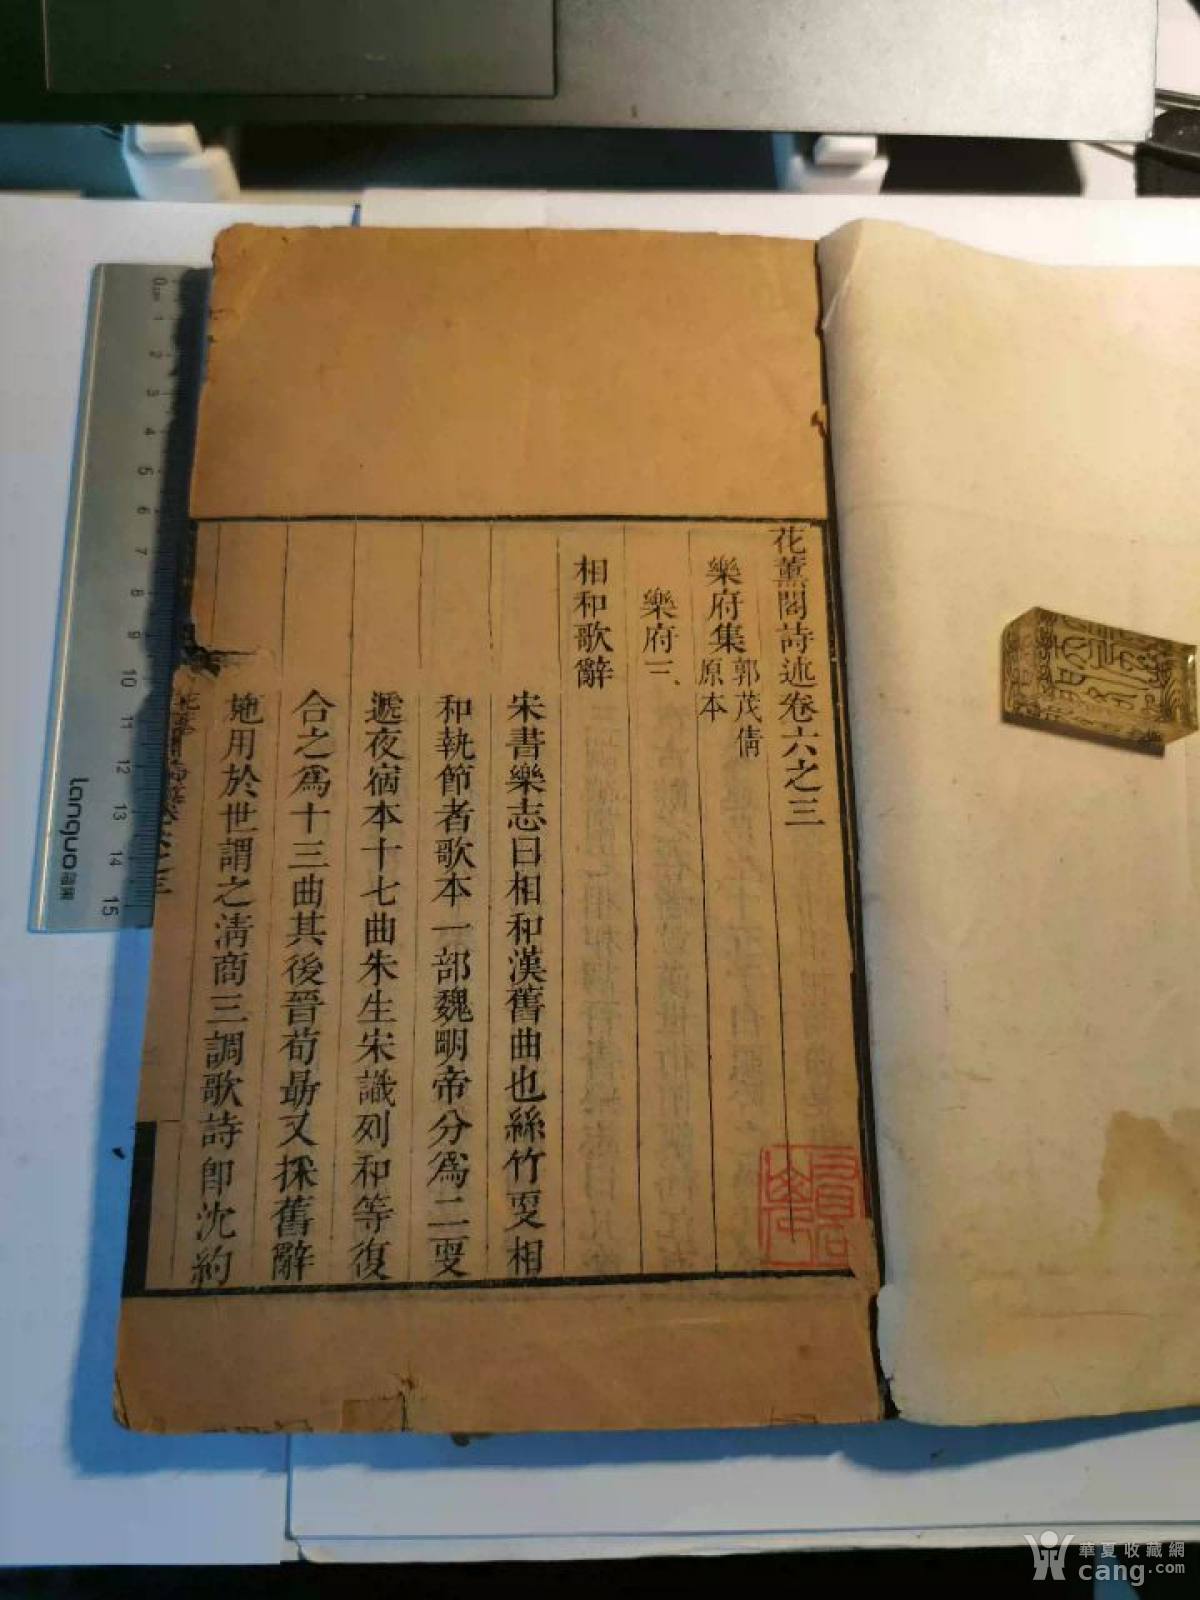 花薰閣詩述卷六之三
樂府集郭茂倩原本
樂府三
相和歌辭
宋書樂志曰相和漢舊曲也絲竹更相
和執節者歌本一部魏明帝分爲二更
遞夜宿本十七曲朱生宋識列和等復
合之爲十三曲其後晉荀勗又採舊辭
施用於世謂之清商三調歌詩卽沈約
0cm 1 2 3 4 5 6 7 8 9 10 11 12 13 14 15
Languo
華夏收藏網
cang.com